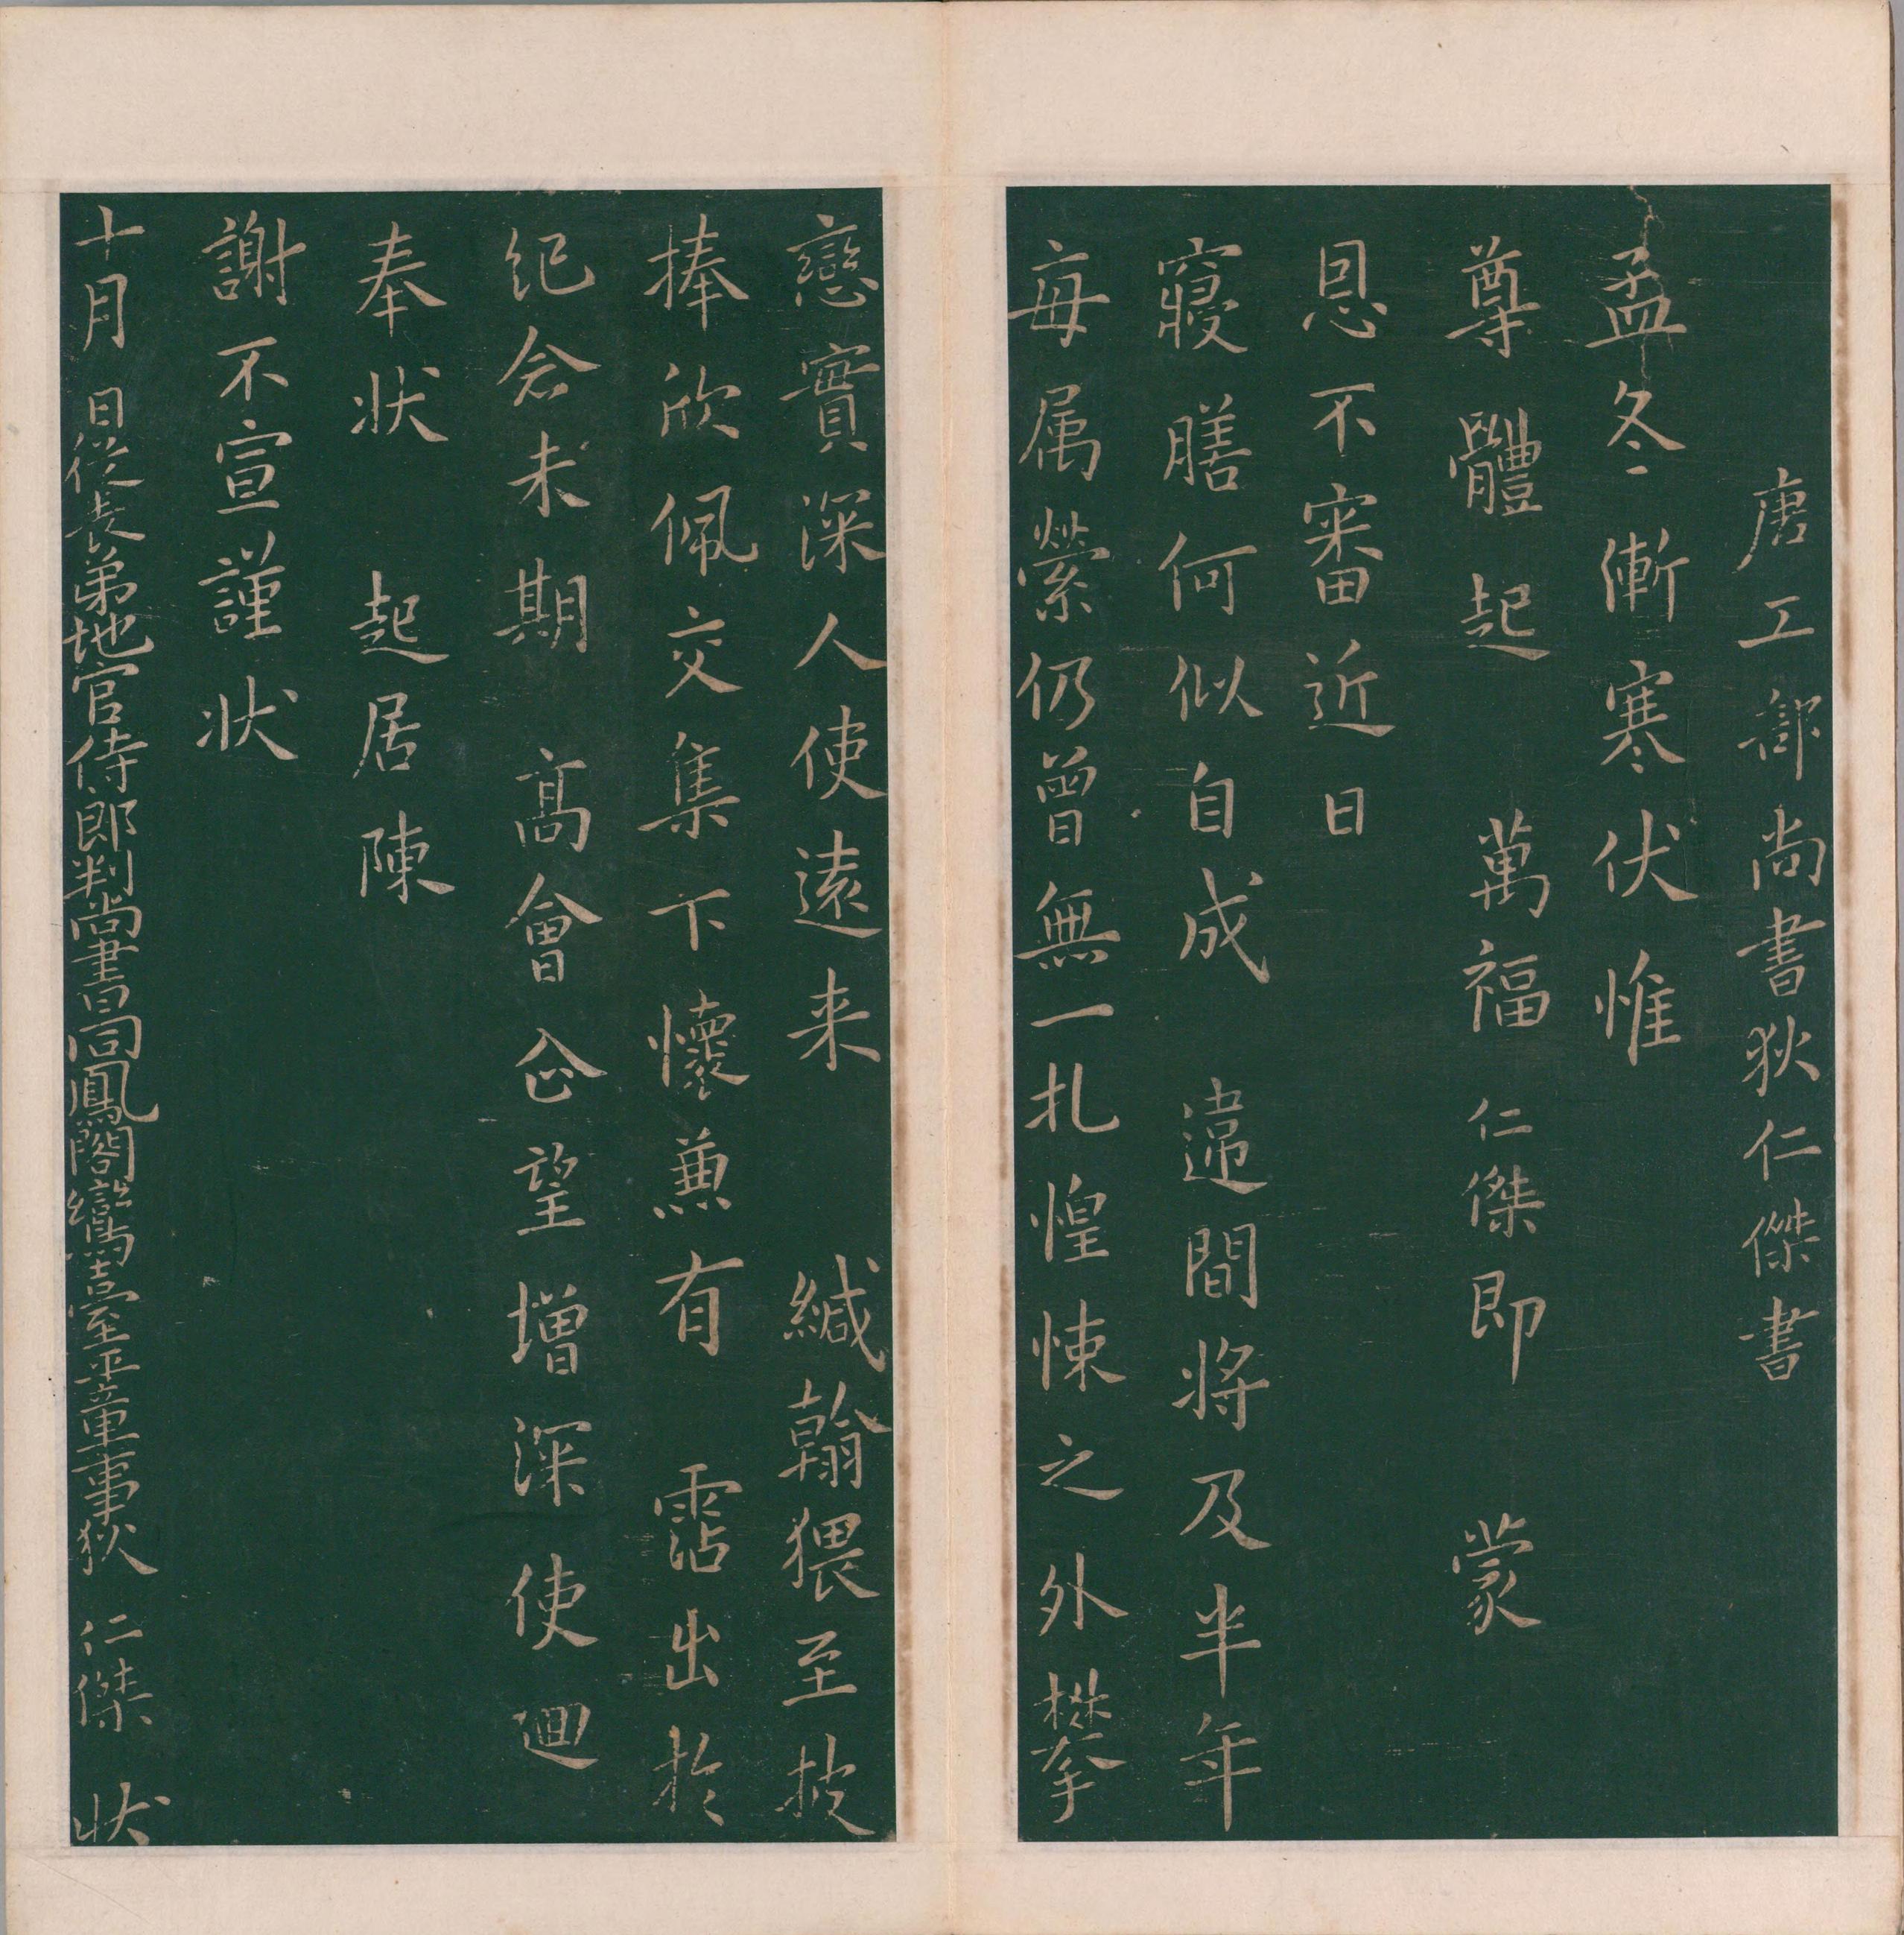 唐工部尚書狄仁傑書
孟冬漸寒伏惟
尊體起 萬福仁傑即 蒙
恩不審近日
寢膳何似自成 違間將及半年
每属縈仍曾無一扎惶悚之外攀
戀實深人使遠来 緘翰猥至披
捧欣佩交集下懷兼有 霑出於
紀念未期 髙會企望增深使迴
奉状 起居陳
謝不宣謹状
十月 日從表弟地官侍郎判尚書同鳳閣鸞臺平章事狄 仁傑 状